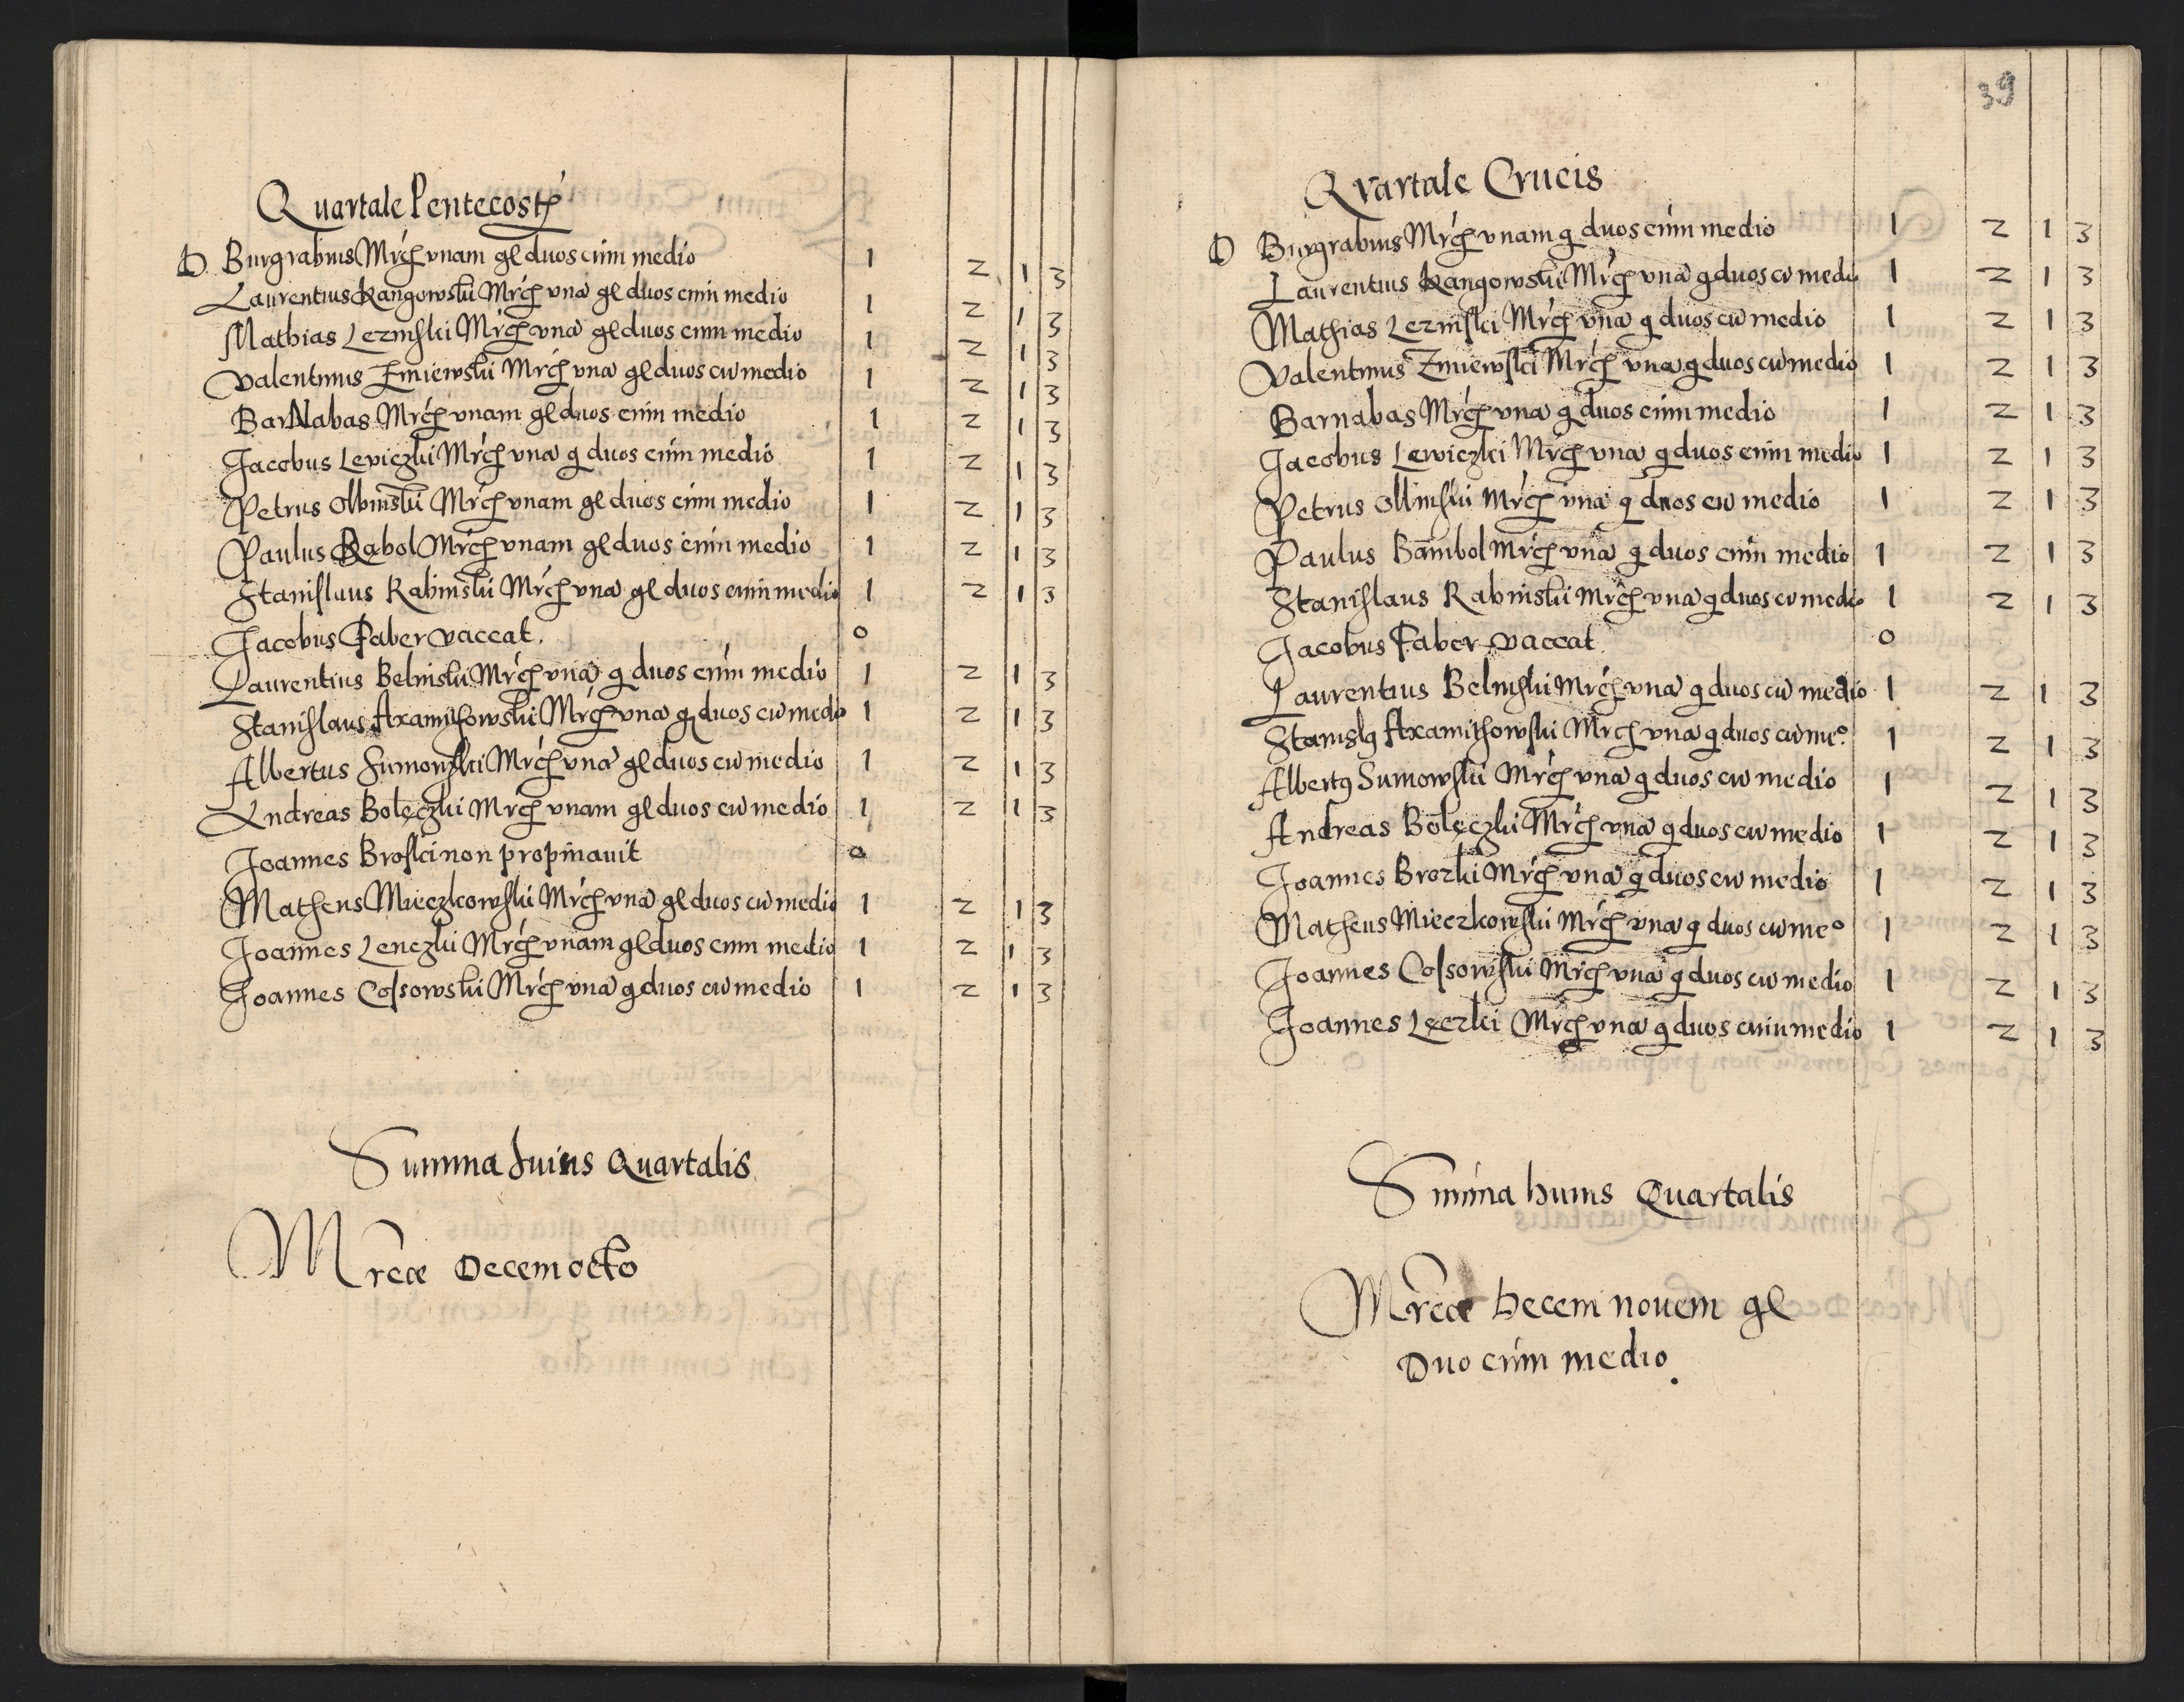 Quartale Pentecosty
D. Burgrabius Mrcȩ vnam gl duos cum medio 1 2 1 3
Laurentius Rangowski Mrcȩ vnā gl duos cum medio 1 2 1 3
Mathias Lezinski Mrcȩ vnā gl duos cum medio 1 2 1 3
Valentinus Zmiewski Mrcȩ vnā gl duos cū medio 1 2 1 3
BarNabas Mrcȩ vnam gl duos cum medio 1 2 1 3
Jacobus Leviczki Mrcȩ vnā g duos cum medio 1 2 1 3
Petrus Olbinski Mrcȩ vnam gl duos cum medio 1 2 1 3
Paulus Babol Mrcȩ vnam gl duos cum medio 1 2 1 3
Stanislaus Rabinski Mrcȩ vnā gl duos cum medio 1 2 1 3
Jacobus Faber vaccat. 0
Laurentius Belinski Mrcȩ vnā g duos cum medio 1 2 1 3
Stanislaus Axamithowski Mrcȩ vnā g duos cū medio 1 2 1 3
Albertus Sumowski Mrcȩ vnā gl duos cū medio 1 2 1 3
Andreas Bolęczki Mrcȩ vnam gl duos cū medio 1 2 1 3
Joannes Broski non propinauit 0
Matheus Mieczkowski Mrcȩ vnā gl duos cū medio 1 2 1 3
Joannes Lenczki Mrcȩ vnam gl duos cum medio 1 2 1 3
Joannes Cossowski Mrcȩ vnā g duos cū medio 1 2 1 3
Summa huius Quartalis
Mrcæ Decem octo
39
Qvartale Crucis
D Burgrabius Mrcȩ vnam g duos cum medio 1 2 1 3
Laurentius Rangowski Mrcȩ vnā g duos cū medio 1 2 1 3
Mathias Lezinski Mrcȩ vnā g duos cū medio 1 2 1 3
Valentinus Zmiewski Mrcȩ vnā g duos cū medio 1 2 1 3
Barnabas Mrcȩ vnā g duos cum medio 1 2 1 3
Jacobus Lewiczki Mrcȩ vnā g duos cum medio 1 2 1 3
Petrus Olbinski Mrcȩ vnā g duos cū medio 1 2 1 3
Paulus Bambol Mrcȩ vnā g duos cum medio 1 2 1 3
Stanislaus Rabinski Mrcȩ vnā g duos cū medio 1 2 1 3
Jacobus Faber vaccat 0
Laurentius Belinski Mrcȩ vnā g duos cū medio 1 2 1 3
Stanislꝰ Axamithowski Mrcȩ vnā g duos cū meº. 1 2 1 3
Albertꝰ Sumowski Mrcȩ vnā g duos cū medio 1 2 1 3
Andreas Bolęczki Mrcȩ vnā g duos cū medio 1 2 1 3
Joannes Brozki Mrcȩ vnā g duos cū medio 1 2 1 3
Matheus Mieczkowski Mrcȩ vnā g duos cū meº 1 2 1 3
Joannes Cossowski Mrcȩ vnā g duos cū medio 1 2 1 3
Joannes Lęczki Mrcȩ vnā g duos cum medio 1 2 1 3
Summa huius Quartalis
Mrcæ Decem nouem gl
Duo cum medio.